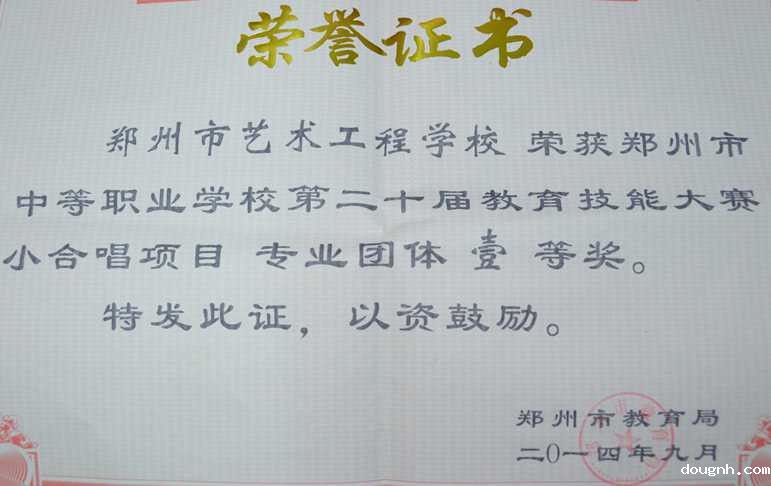 荣誉证书
郑州市艺术工程学校 荣获郑州市
中等职业学校第二十届教育技能大赛
小合唱项目 专业团体 壹 等奖。
特发此证，以资鼓励。
郑州市教育局
二0一四年九月
dougnh.com